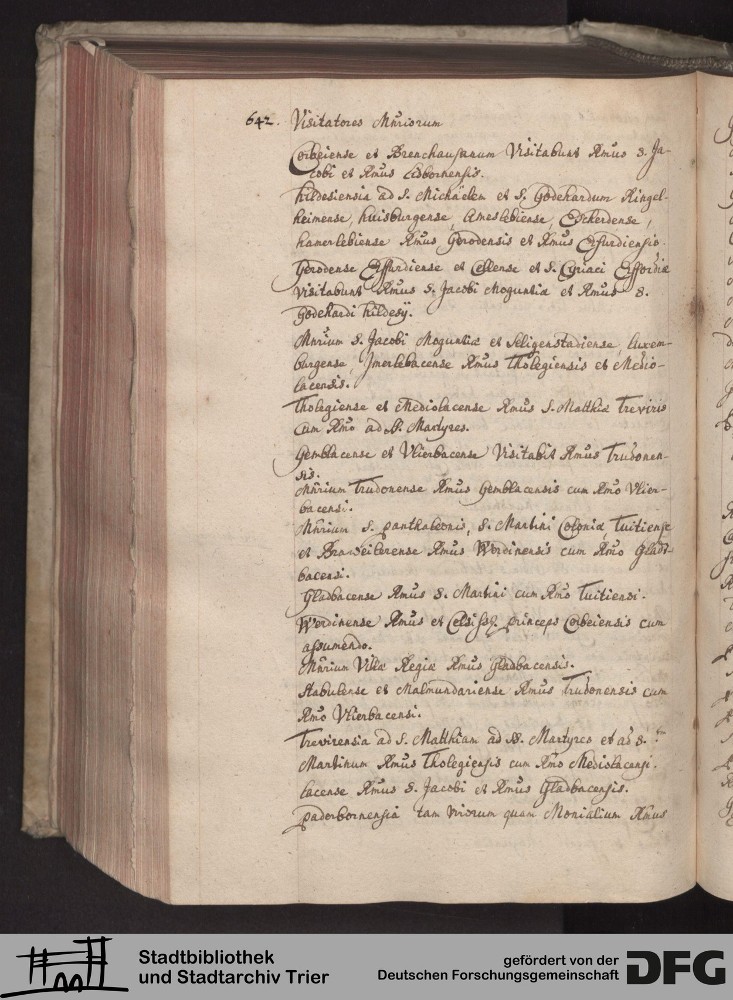 642. Visitatores Mnriorum
Corbeiense et Brenchausanum Visitabunt Rmus S. Ja-
cobi et Rmus Lisbornensis.
Hildesiensia ad S. Michaëlem et S. Godehardum Ringel-
heimense, huisburgense, Ameslebiense,
hamerlebiense Rmus Gerodensis et Rmus Erfurdiensis.
Gerodense Erffurdiense et Cellense et S. Cyriaci Erffordiæ
visitabunt Rmus S. Jacobi Moguntiæ et Rmus S.
Godehardi hildesij.
Mnrium S. Jacobi Moguntiæ et Seligenstadiense, luxem-
burgense, Jmerlebacense Rmus Tholegiensis et Medio-
lacensis.
Tholegiense et Mediolacense Rmus S. Matthiæ Treviris
cum Rmo ad SS. Martyres.
Gemblacense et Vlierbacense Visitabit Rmus Trudonen-
sis.
Mnrium Trudonense Rmus Gemblacensis cum Rmo Vlier-
bacensi.
Mnrium S. Panthaleonis, S. Martini Coloniæ, Tuitiense
et Brauweilerense Rmus Werdinensis cum Rmo Glad-
bacensi.
Gladbacense Rmus S. Martini cum Rmo Tuitiensi.
Werdinense Rmus et Celsiss. princeps Corbeiensis cum
assumendo.
Mnrium Villæ Regiæ Rmus Gladbacensis.
Stabulense et Malmundariense Rmus Trudonensis cum
Rmo Vlierbacensi.
Trevirensia ad S. Matthiam ad SS. Martyres et ad S.
Martinum Rmus Tholegiensis cum Rmo Mediolacensi.
lacense Rmus S. Jacobi et Rmus Gladbacensis.
Paderbornensia tam Virorum quam Monialium Rmus
Stadtbibliothek
und Stadtarchiv Trier
gefördert von der
Deutschen Forschungsgemeinschaft
DFG